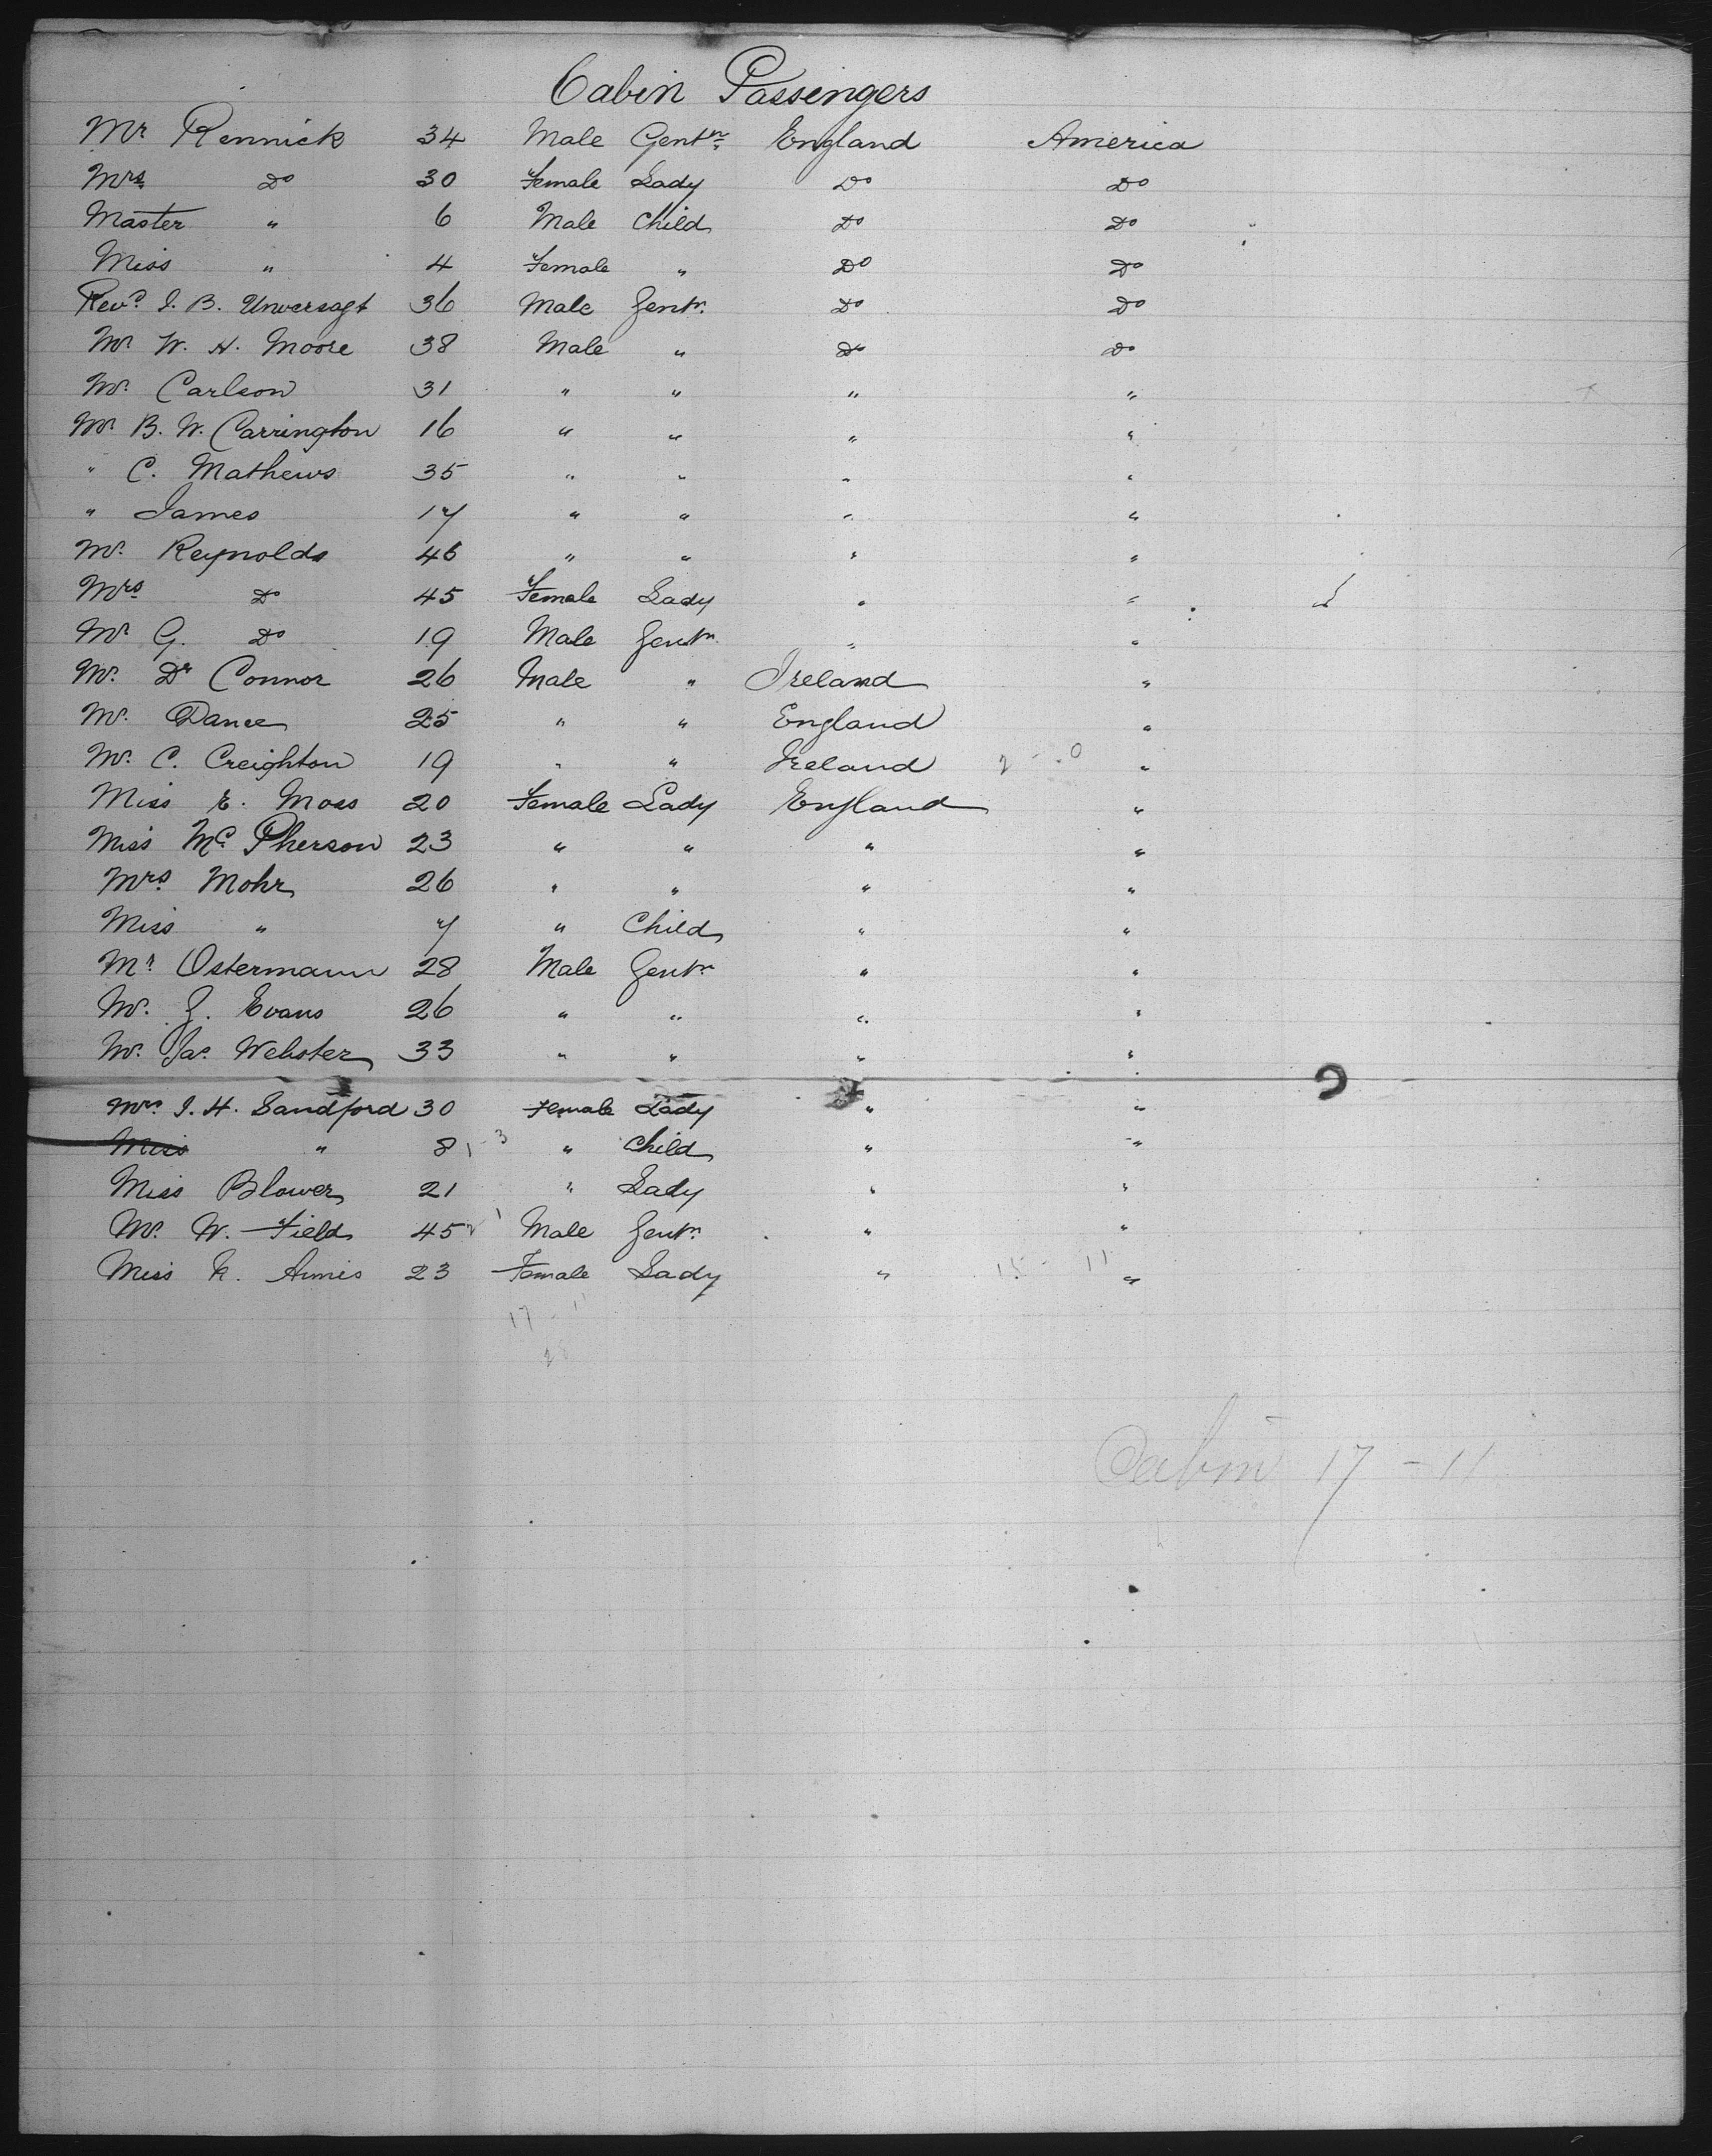 Cabin Passengers
Mr Rennick 34 Male Gentn England America
Mrs Do 30 Female Lady Do Do
Master " 6 Male Child Do Do
Miss " 4 Female " Do Do
Revd J. B. Unversagt 36 Male Gentn Do Do
Mr W. H. Moore 38 Male " Do Do
Mr Carlson 31 " " " "
Mr B. W. Carrington 16 " " " "
" C. Mathews 35 " " " "
" James 17 " " " "
Mr Reynolds 46 " " " "
Mrs Do 45 Female Lady " "
Mr G. Do 19 Male Gentn " "
Mr Dr Connor 26 Male " Ireland "
Mr Dance 25 " " England "
Mr C. Creighton 19 " " Ireland 2 - 0 "
Miss E. Moss 20 Female Lady England "
Miss Mc Pherson 23 " " " "
Mrs Mohr 26 " " " "
Miss " 7 " Child " "
Mr Ostermann 28 Male Gentn " "
Mr J. Evans 26 " " " "
Mr Jas Webster 33 " " " "
Mrs J. H. Sandford 30 Female Lady " "
Miss " 8 1 - 3 " Child " "
Miss Blower 21 " Lady " "
Mr W. Field 45 2 1 Male Gentn " "
Miss Annis 23 Female Lady " 15 - 11 "
17 - 11
Cabin 17 - 11